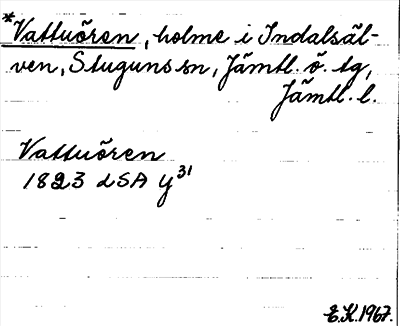 *Vattuören, holme i Indalsäl-
ven, Stuguns sn, Jämtl. ö. tg,
Jämtl. l.
Vattuören
1823 LSA y³¹
E.K.1967.